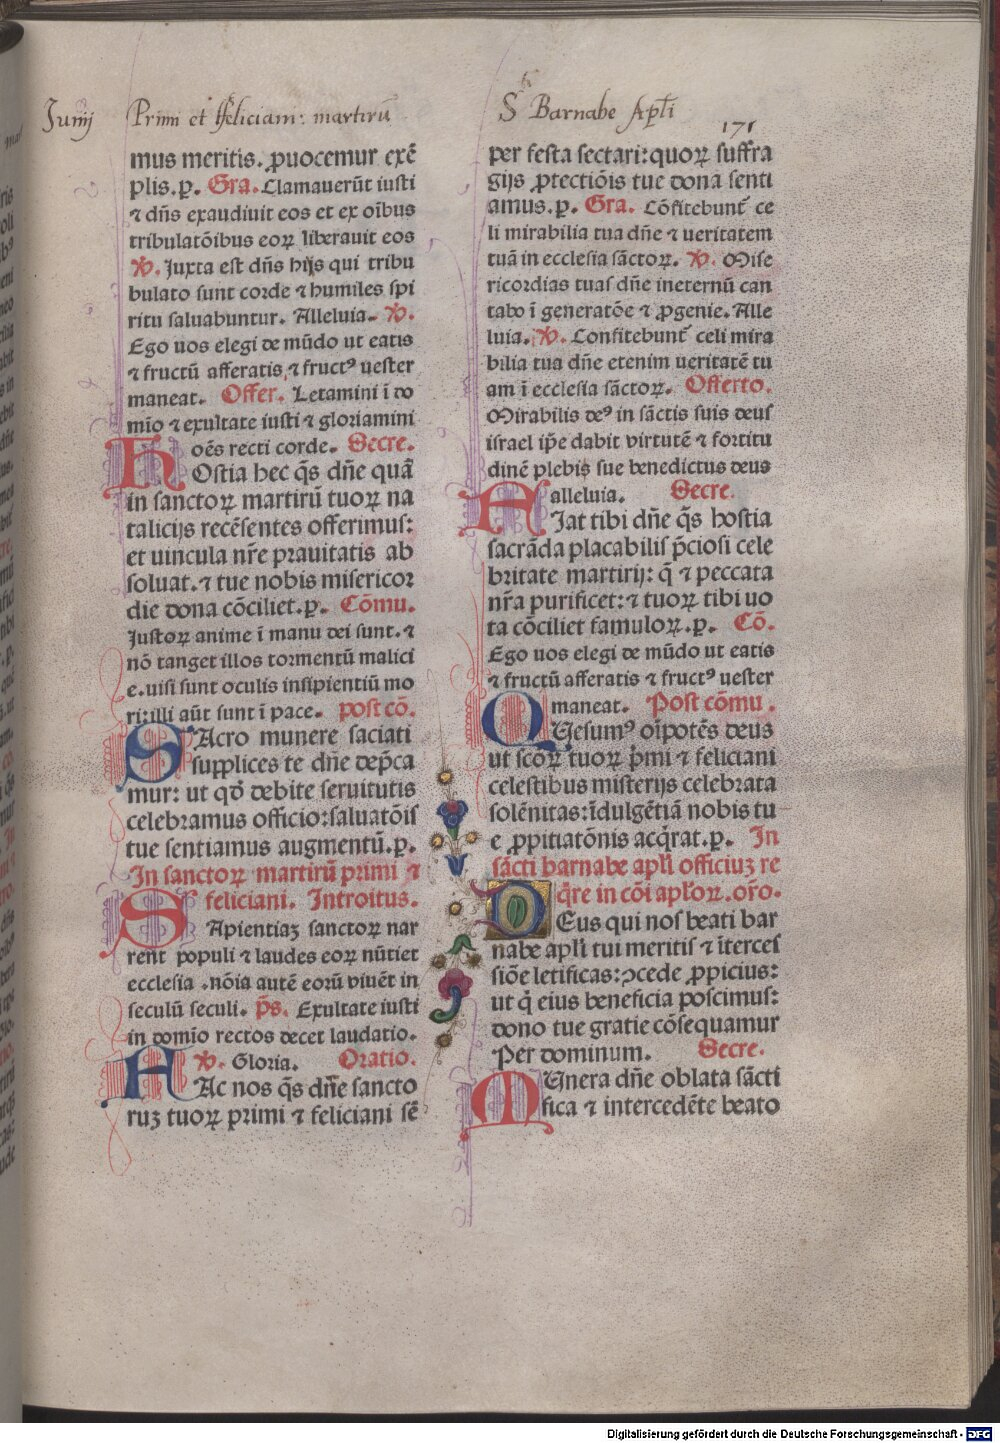 Junij
Primi et ffeliciani: martirū
S Barnabe Apłi
171
mus meritis. ꝓuocemur exē
plis.p. Gra. Clamauerūt iusti
⁊ dn̄s exaudiuit eos et ex oībus
tribulatōibus eoꝝ liberauit eos
℣. Iuxta est dn̄s hijs qui tribu
bulato sunt corde ⁊ humiles spi
ritu saluabuntur. Alleluia. ℣.
Ego uos elegi de mūdo ut eatis
⁊ fructū afferatis ⁊ fructꝰ uester
maneat. Offer. Letamini ī do
mīo ⁊ exultate iusti ⁊ gloriamini
oēs recti corde. Secre.
Hostia hec q̄s dn̄e quā
in sanctoꝝ martirū tuoꝝ na
talicijs recēsentes offerimus:
et uincula nr̄e prauitatis ab
soluat. ⁊ tue nobis misericor
die dona cōciliet.p. Cōmu.
Iustoꝝ anime ī manu dei sunt. ⁊
nō tanget illos tormentū malici
e. uisi sunt oculis insipientiū mo
ri: illi aūt sunt ī pace. post cō.
SAcro munere saciati
supplices te dn̄e dep̄ca
mur: ut qd̄ debite seruitutis
celebramus officio: saluatōis
tue sentiamus augmentū.p.
In sanctoꝝ martirū primi ⁊
feliciani. Introitus.
SApientiaꝫ sanctoꝝ nar
rent populi ⁊ laudes eoꝝ nūtiet
ecclesia .nōia autē eorū viuēt in
seculū seculi. p̄s. Exultate iusti
in domīo rectos decet laudatio.
℣. Gloria. Oratio.
FAc nos q̄s dn̄e sancto
ruꝫ tuoꝝ primi ⁊ feliciani sē
per festa sectari: quoꝝ suffra
gijs ꝓtectiōis tue dona senti
amus.p. Gra. Cōfitebunt̄ ce
li mirabilia tua dn̄e ⁊ ueritatem
tuā in ecclesia sāctoꝝ. ℣. Mise
ricordias tuas dn̄e ineternū can
tabo ī generatōe ⁊ ꝓgenie. Alle
luia. ℣. Confitebunt̄ celi mira
bilia tua dn̄e etenim ueritatē tu
am ī ecclesia sāctoꝝ. Offerto.
Mirabilis deꝰ in sāctis suis deus
israel ip̄e dabit virtutē ⁊ fortitu
dinē plebis sue benedictus deus
alleluia. Secre.
FIat tibi dn̄e q̄s hostia
sacrāda placabilis p̄ciosi cele
britate martirij: q̄ ⁊ peccata
nr̄a purificet: ⁊ tuoꝝ tibi uo
ta cōciliet famuloꝝ.p. Cō.
Ego uos elegi de mūdo ut eatis
⁊ fructū afferatis ⁊ fructꝰ uester
maneat. Post cōmu.
QUesumꝰ oīpotēs deus
ut scōꝝ tuoꝝ p̄mi ⁊ feliciani
celestibus misterijs celebrata
solēnitas: īdulgētiā nobis tu
e ꝓpitiatōnis acq̄rat.p. In
sācti barnabe apłi officiuꝫ re
q̄re in cōi apłoꝝ. or̄o.
DEus qui nos beati bar
nabe apłi tui meritis ⁊ īterces
siōe letificas: ꝯcede ꝓpicius:
ut q̄ eius beneficia poscimus:
dono tue gratie cōsequamur
Per dominum. Secre.
MUnera dn̄e oblata sācti
fica ⁊ intercedēte beato
Digitalisierung gefördert durch die Deutsche Forschungsgemeinschaft - DFG